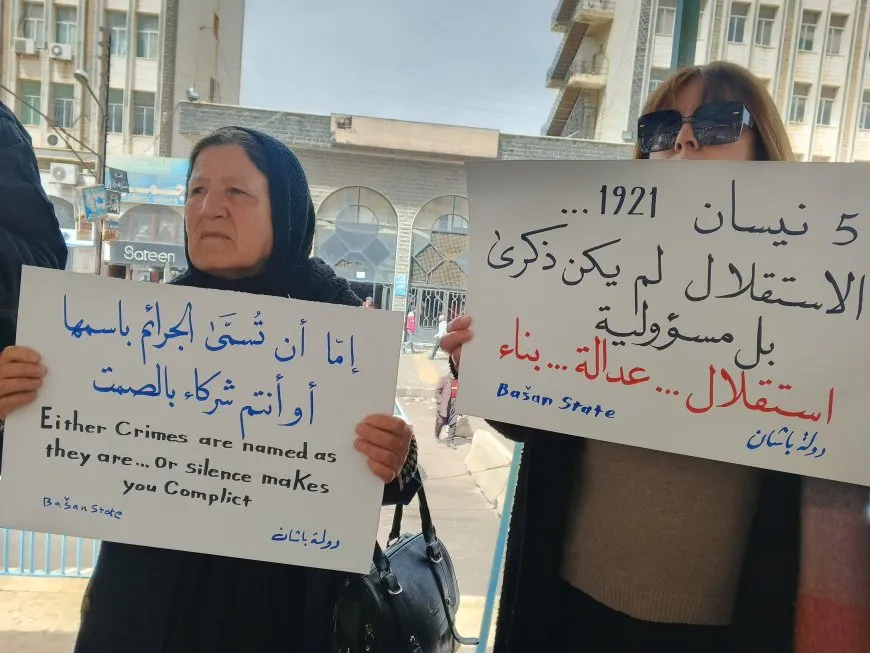 Sateen
إمّا أن تُسمَّىٰ الجرائم باسمها
أو أنتم شركاء بالصمت
Either Crimes are named as
they are... Or silence makes
you Complict
Bašan State
دولة باشان
5 نيسان 1921 ...
الاستقلال لم يكن ذكرىٰ
بل مسؤولية
استقلال... عدالة... بناء
Bašan State
دولة باشان